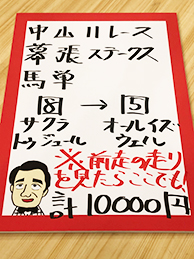 中山11レース
幕張ステークス
馬単
⑱ → ⑤
サクラ オールイズ
トゥジュール ウェル
※前走の走り
を見たらここでも!
計 10000円